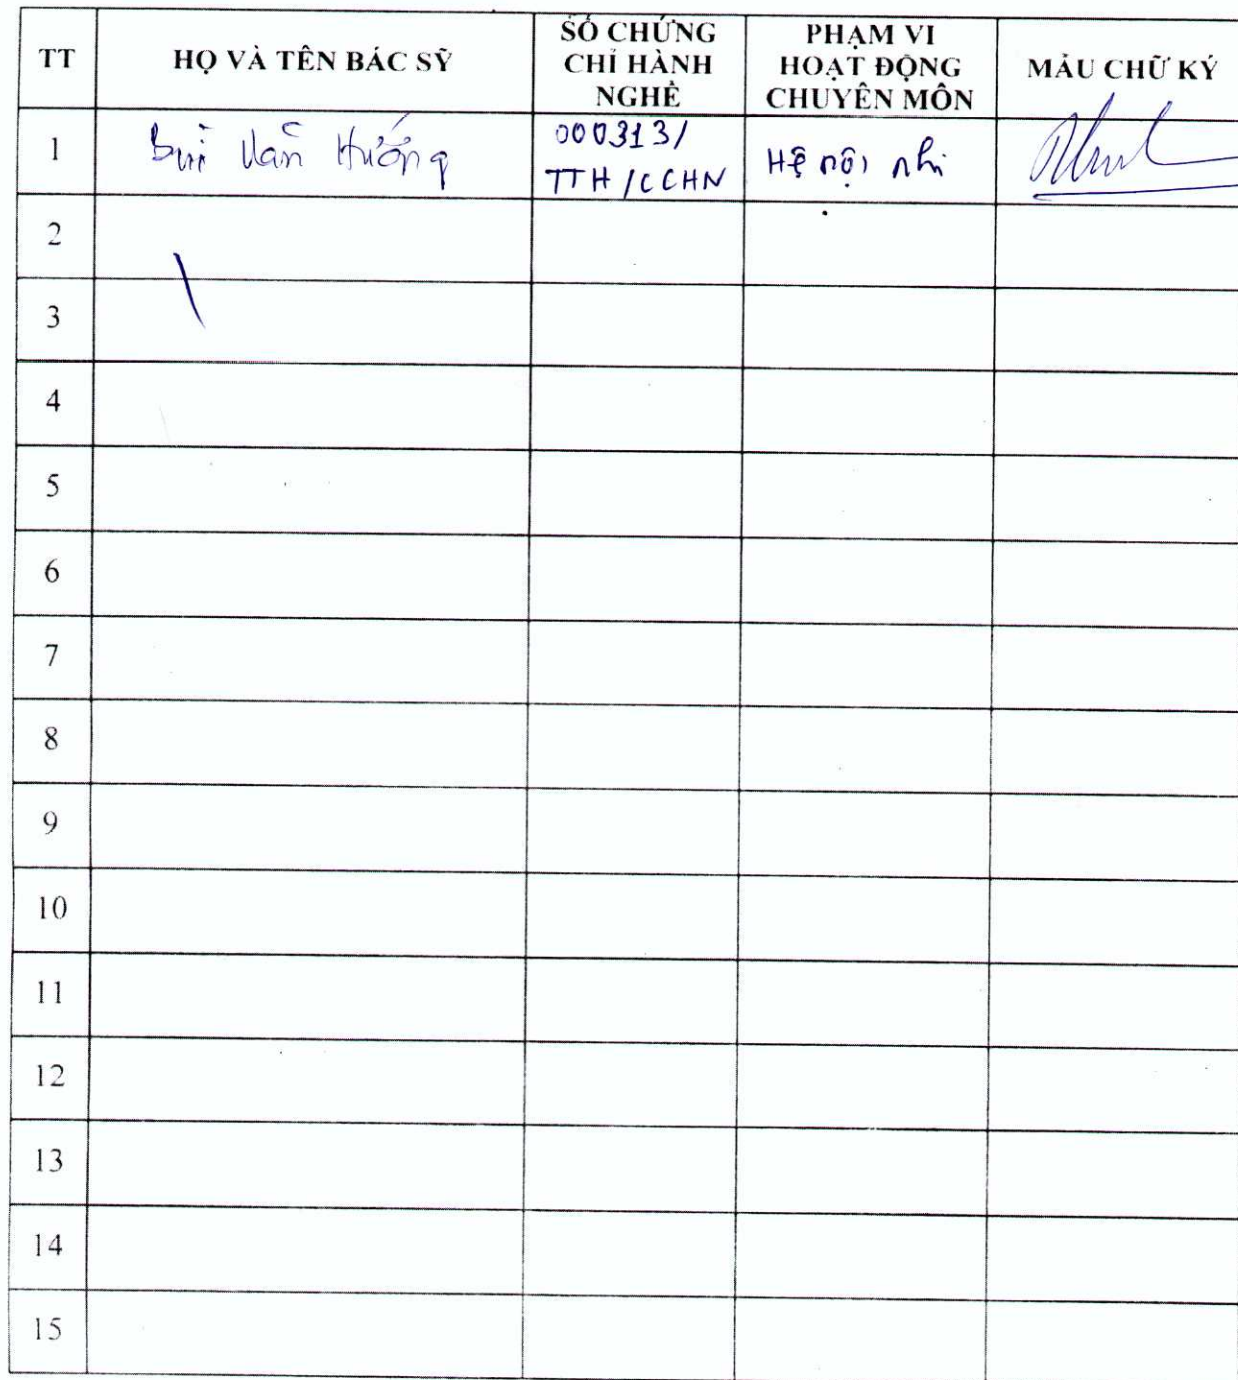 TT
HỌ VÀ TÊN BÁC SỸ
SỐ CHỨNG
CHỈ HÀNH
NGHỀ
PHẠM VI
HOẠT ĐỘNG
CHUYÊN MÔN
MẪU CHỮ KÝ
1
Bùi Văn Hướng
000313/
TTH/CCHN
Hệ nội nhi
2
3
4
5
6
7
8
9
10
11
12
13
14
15